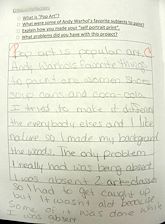 What is "Pop Art"?
What were some of Andy Warhol's favorite subjects to paint?
Explain how you made your "self portrait print".
What problems did you have with this project?
Pop art is popular art.
Andy Warhols favorite things
to paint are women, shoes,
soup cans and coca-cola.
I tried to make it different
then everybody elses and I like
nature so I made my background
the woods. The only problem
I really had was being absent.
I was absent 2 art-classes
so I had to get caught up
but it wasnt old because
some of it was done while
I was absent